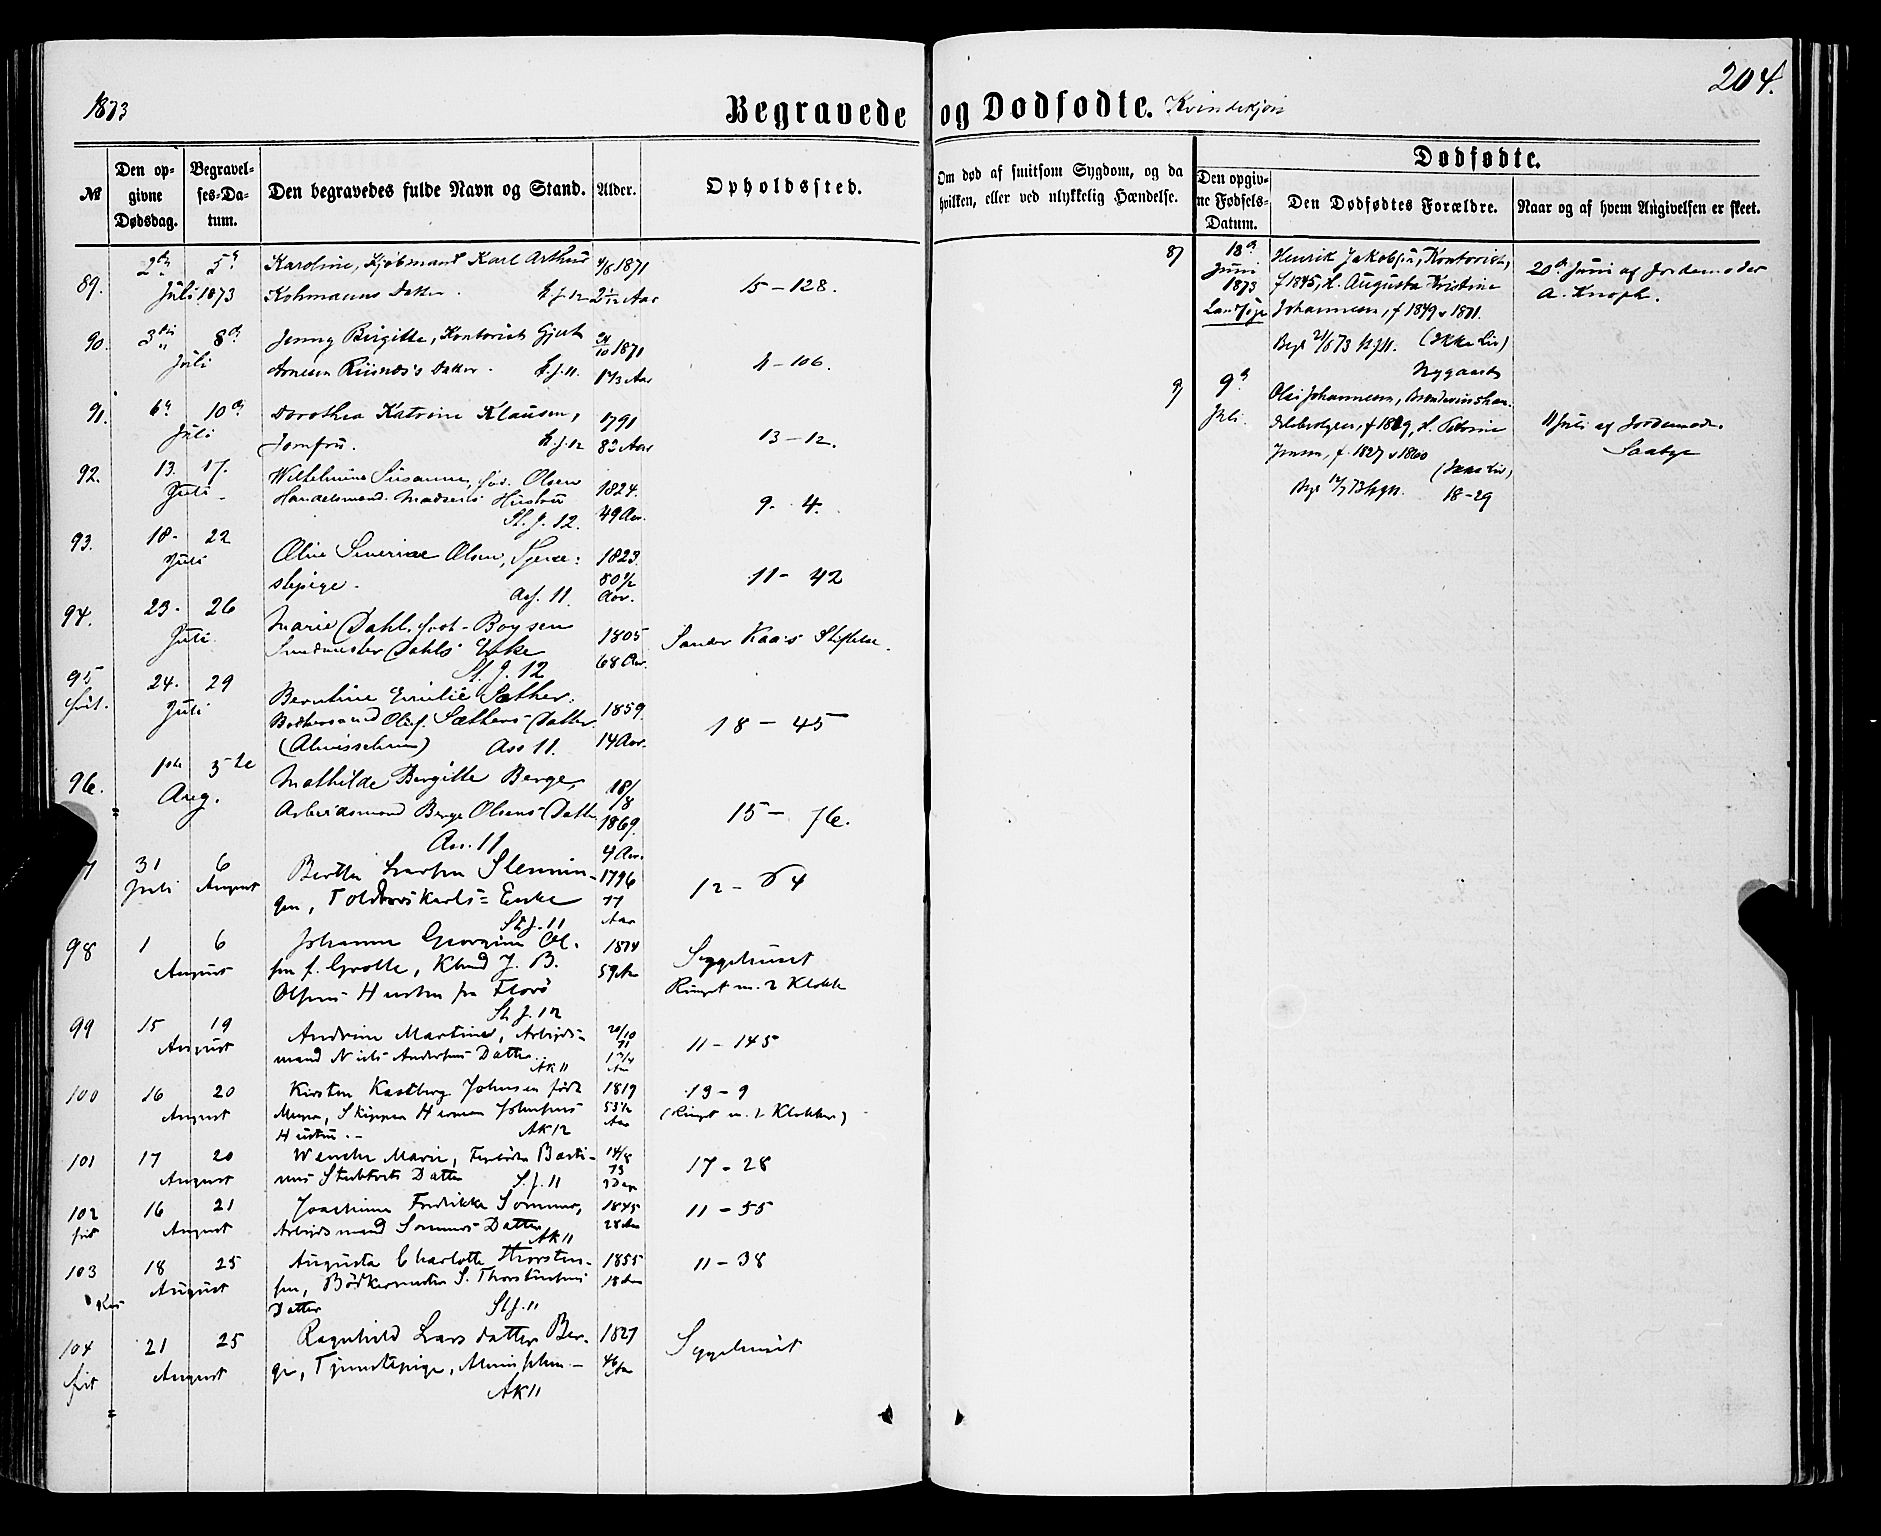 1873
204.
Begravede og Dødfødte. Kvindekjøn
№
Den opgivne Dødsdag.
Begravelses-Datum.
Den begravedes fulde Navn og Stand.
Alder.
Opholdssted.
Om død af smitsom Sygdom, og da hvilken, eller ved ulykkelig Hændelse.
Dødfødte.
Den opgivne Fødsels-Datum.
Den Dødfødtes Forældre.
Naar og af hvem Angivelsen er skeet.
89. 2den 5te Karoline, Kjøbmand Karl Arthur 1871
Juli 1873 Kohmanns Datter. 2 1/12 Aar 15-128.
90. 3die 8de Jenny Birgitte, Kontorist Gjert 24/10 1871
Juli Arnesen Riisnæs's Datter. 1 2/3 Aar 4-106.
91. 6te 10de Dorothea Katrine Klausen, 1791
Juli Jomfru. 82 Aar 13-12.
92. 13. 17. Wilhelmine Susanne, fød. Olsen 1824.
Juli Handelsmand Madsens Hustru 49 Aar. 9. 4.
St. J. 12.
93. 18. 22 Oline Severine Olsen, Tjene- 1823.
Juli stepige. Ass. 11. 50 1/2 Aar. 11-42
94. 23. 26 Marie Dahl, født Boysen 1805
Juli Smedmester Dahls Enke 68 Aar. Sander Kaas Stiftelse.
St. J. 12
95 24. 29 Berntine Emilie Sæther,
frit. Juli Bødkersvend Oluf Sæthers Datter 1859.
(Almisselem) Ass 11. 14 Aar. 18-45
96. 1ste 5te Mathilde Bergitte Berge, 18/8
Aug. Arbeidsmand Berge Olsens Datter 1869. 15-76.
Ass. 11 4 Aar.
31 6 Bertha Larsen Slemmin- 1796
Juli August gen, Toldorskarls Enke 77 Aar 12-64
St. J. 11
98 1 6 Johanne Georgine Ol- 1814
August sen f. Grotle, Kbmd J. B. 59 Aar Sygehuset
Olsens Hustru fra Florø Ringet m. 2 Klokker
St. J. 12
99 15 19 Andrine Martine, Arbejds- 20/10 71
August mand Niels Andersens Datter 1 3/4 Aar 11-145
AK 11
100 16 20 Kirsten Kastberg Johnsen født 1819 13-9
August Meyer, Skipper Herman Johnsens 53 1/2 Aar (Ringet m. 2 Klokker)
Hustru.- AK 12
101 17 20 Wenche Marie, Basti- 14/8 73
August Datter St. J. 11 3 Dage 17-28
102 16 21 Joachime Fredrikke Sommer, 1845 11-55
frit August Arbejdsmand Sommers Datter 28 Aar
AK 11
103 18 25 Augusta Charlotte Thorsten- 1855 11-38
August sen, Bødkermester S. Thorstensens 18 Aar
Datter St. J. 11
104 21 25 Ragnhild Larsdatter Ber- 1827 Sygehuset
frit August ge, Tjenestepige, Almisselem.- 46 Aar
AK 11
8) 18de Henrik Jakobsen, Kontorist,
Juni f 1845, H. Augusta Kristine 20de Juni af Jordemoder
1873 Johannesen, f 1849 v 1871. A. Knoph.
Begr 21/6 73 (Ikke Liv)
Nygaards
9) 9de Ole Johannesen, Brændevinshan-
Juli. delsbetyrer, f 1829, H. Petrine 11 Juli af Jordemoder
Jensen, f. 1827 v 1860 Saabye
Begr 12/7 73 (Ikke Liv)
18-29